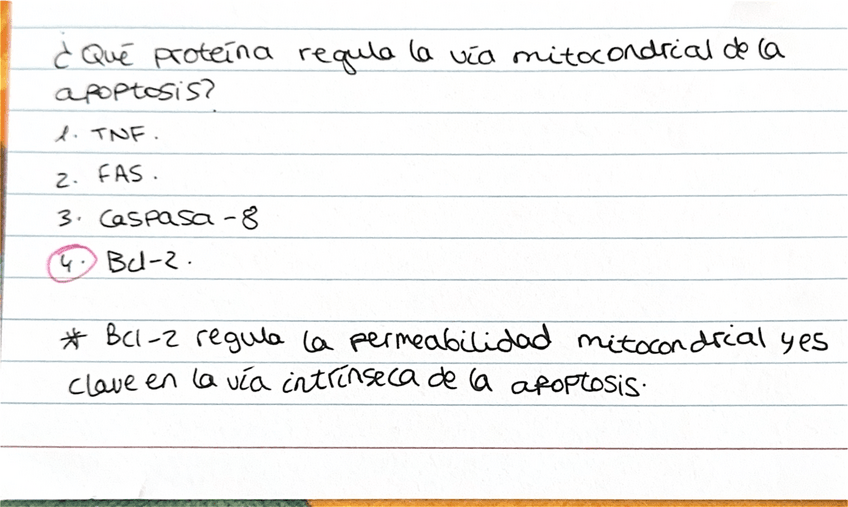 ¿Qué proteína regula la vía mitocondrial de la
apoptosis?
1. TNF.
2. FAS.
3. Caspasa-8
4. Bcl-2.
* Bcl-2 regula la permeabilidad mitocondrial y es
clave en la vía intrínseca de la apoptosis.